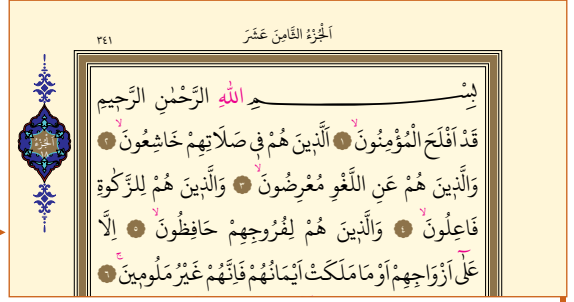 ٣٤١ اَلْجُزْءُ الثَّامِنَ عَشَرَ
بِسْــــــــمِ اللهِ الرَّحْمٰنِ الرَّح۪يمِ
قَدْ اَفْلَحَ الْمُؤْمِنُونَۙ ﴿١﴾ اَلَّذ۪ينَ هُمْ ف۪ي صَلَاتِهِمْ خَاشِعُونَۙ ﴿٢﴾
وَالَّذ۪ينَ هُمْ عَنِ اللَّغْوِ مُعْرِضُونَۙ ﴿٣﴾ وَالَّذ۪ينَ هُمْ لِلزَّكٰوةِ
فَاعِلُونَۙ ﴿٤﴾ وَالَّذ۪ينَ هُمْ لِفُرُوجِهِمْ حَافِظُونَۙ ﴿٥﴾ اِلَّا
عَلٰٓى اَزْوَاجِهِمْ اَوْ مَا مَلَكَتْ اَيْمَانُهُمْ فَاِنَّهُمْ غَيْرُ مَلُوم۪ينَۚ ﴿٦﴾
اَلْجُزْءُ